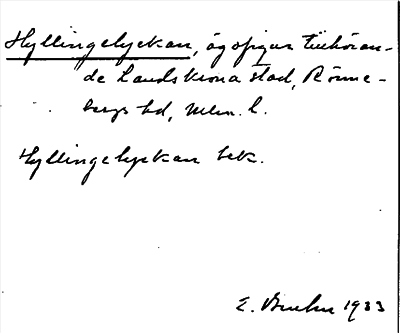 Hyllingelyckan, ägofigur tillhöran-
de Landskrona stad, Rönne-
bergs hd, Mlm. l.
Hyllingelyckan bek.
E. Bruhn 1933